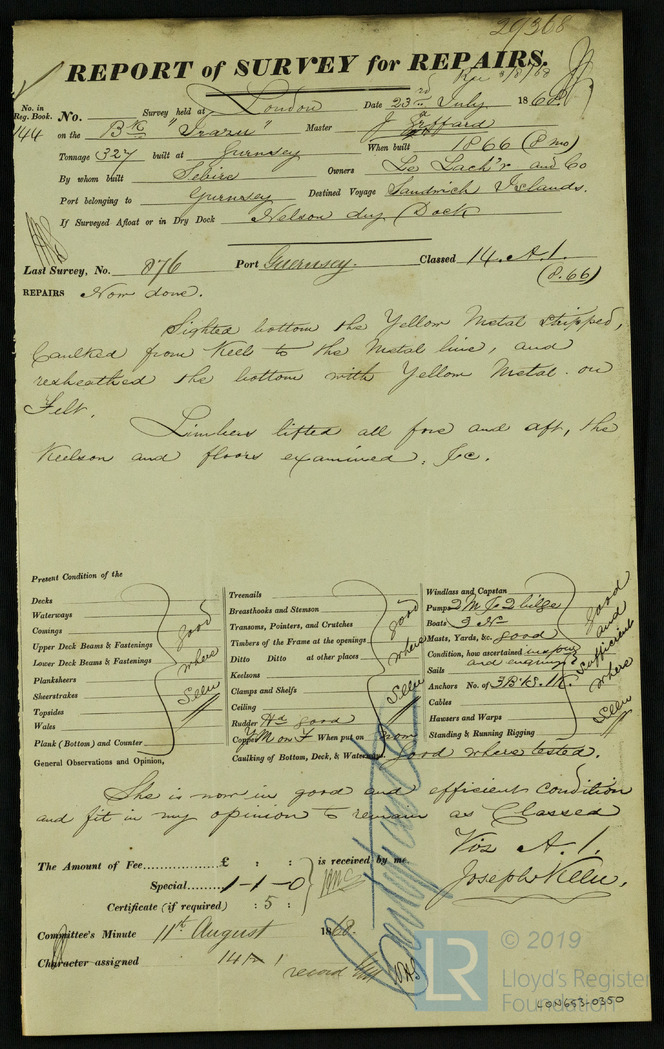 29368
REPORT of SURVEY for REPAIRS.
Rec 8/8/68
No. in Reg. Book. No. Survey held at London Date 23rd July, 1868
144 on the Bk "Irazu" Master J Griffard
Tonnage 327 built at Gurnsey When built 1866 (8 mo)
By whom built Sebire Owners Le Lach'r and Co
Port belonging to Gurnsey Destined Voyage Sandwich Islands.
If Surveyed Afloat or in Dry Dock Nelson dry Dock
Last Survey, No. 876 Port Guernsey. Classed 14. A.1.
(8.66)
REPAIRS Now done.
Sighted bottom the Yellow Metal stripped,
Caulked from Keel to the Metal line, and
resheathed the bottom with Yellow Metal on
Felt.
Limbers lifted all fore and aft, the
Keelson and floors examined, &c.
Present Condition of the
Decks
Waterways
Comings
Upper Deck Beams & Fastenings
Lower Deck Beams & Fastenings
Planksheers
Sheerstrakes
Topsides
Wales
Plank (Bottom) and Counter
good where seen
Treenails
Breasthooks and Stemson
Transoms, Pointers, and Crutches
Timbers of the Frame at the openings
Ditto Ditto at other places
Keelsons
Clamps and Shelfs
Ceiling
good where seen
Rudder good
Copper YM on F When put on now
Caulking of Bottom, Deck, & Waterways good where tested.
Windlass and Capstan
Pumps 2 M & 2 bilge
Boats
Masts, Yards, &c. good
Condition, how ascertained
and enquiry
Sails
Anchors No. of 3
Cables
Hawsers and Warps
Standing & Running Rigging
good and sufficient where seen
General Observations and Opinion,
She is now in good and efficient condition
and fit in my opinion to remain as Classed
Viz A.1.
Joseph Keen.
The Amount of Fee £ : : is received by me.
Special 1-1-0
Certificate (if required) : 5 :
Committee's Minute 11th August 1868.
Character assigned 14 A 1
record
© 2019
LR
Lloyd's Register
Foundation
LON653-0350